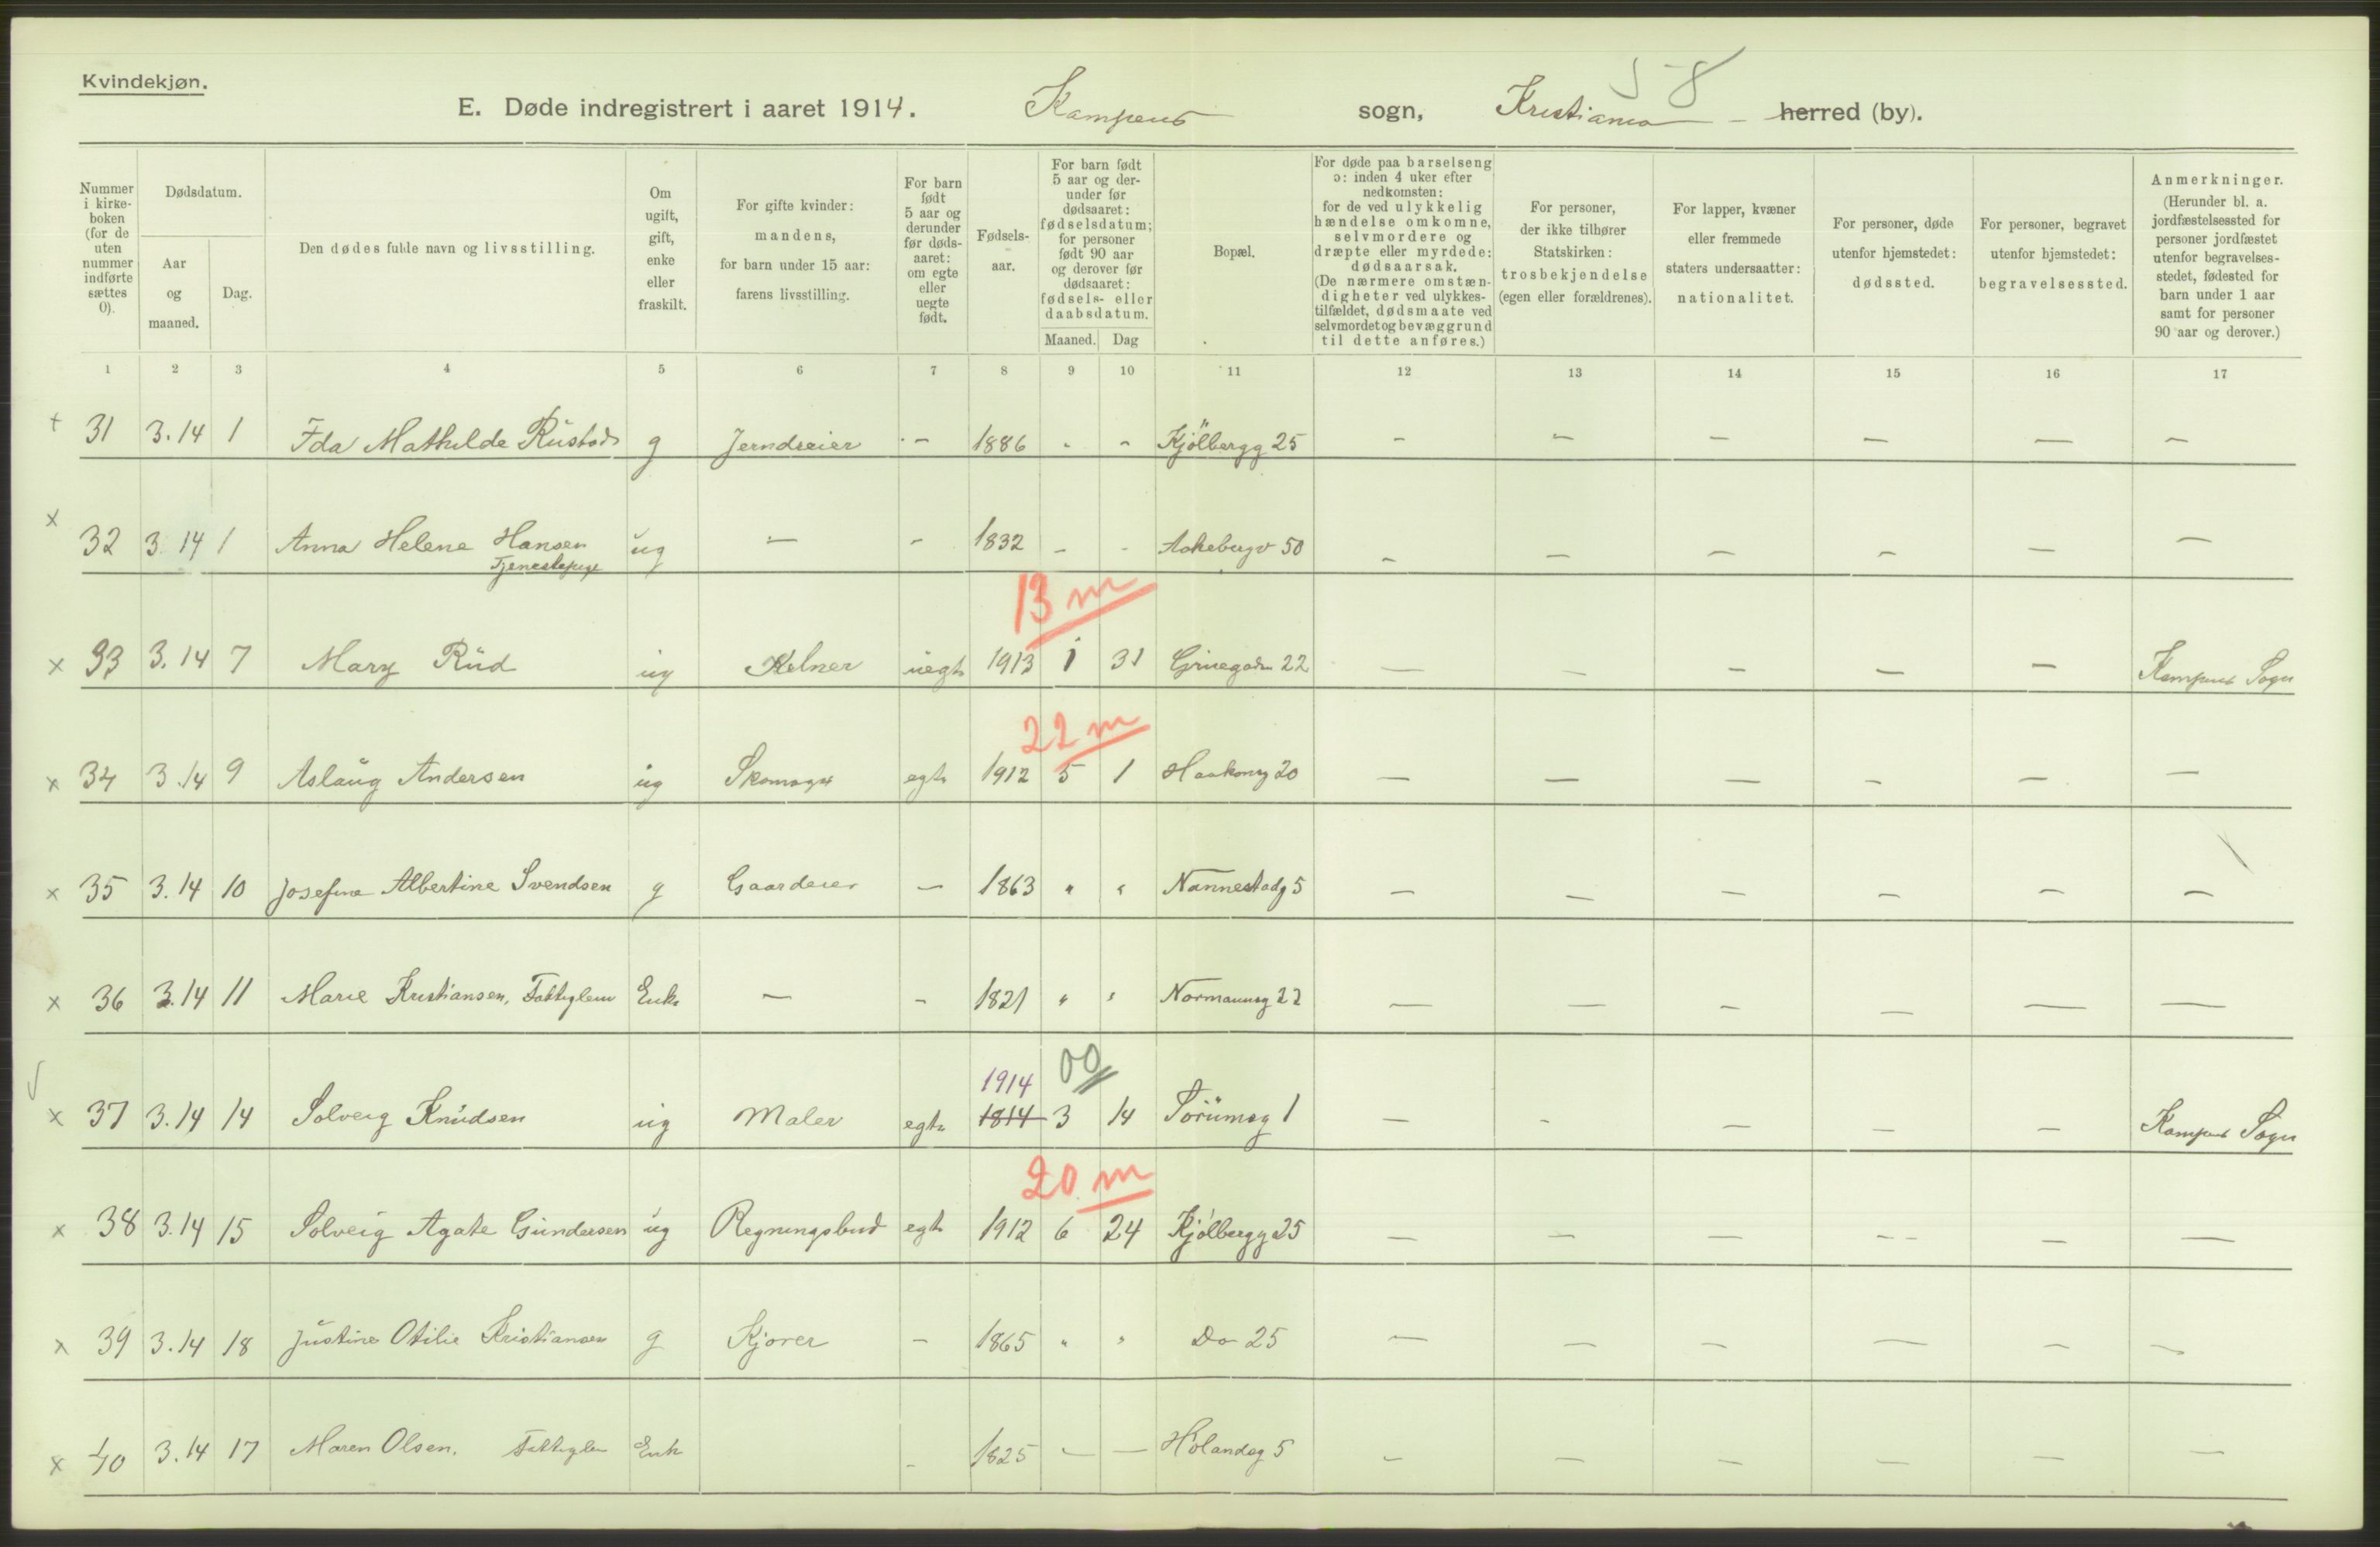 Kvindekjøn.
58
E. Døde indregistrert i aaret 1914. Kampens sogn, Kristiania herred (by).
Nummer i kirke-boken (for de uten nummer indførte sættes 0).
Dødsdatum.
Aar og maaned.
Dag.
Den dødes fulde navn og livsstilling.
Om ugift, gift, enke eller fraskilt.
For gifte kvinder: mandens, for barn under 15 aar: farens livsstilling.
For barn født 5 aar og derunder før døds-aaret: om egte eller uegte født.
Fødsels-aar.
For barn født 5 aar og der-under før dødsaaret: fødselsdatum; for personer født 90 aar og derover før dødsaaret: fødsels- eller daabsdatum.
Maaned. Dag
Bopæl.
For døde paa barselseng ɔ: inden 4 uker efter nedkomsten: for de ved ulykkelig hændelse omkomne, selvmordere og dræpte eller myrdede: dødsaarsak. (De nærmere omstæn-digheter ved ulykkes-tilfældet, dødsmaate ved selvmordet og bevæggrund til dette anføres.)
For personer, der ikke tilhører Statskirken: trosbekjendelse (egen eller forældrenes).
For lapper, kvæner eller fremmede staters undersaatter: nationalitet.
For personer, døde utenfor hjemstedet: dødssted.
For personer, begravet utenfor hjemstedet: begravelsessted.
Anmerkninger. (Herunder bl. a. jordfæstelsessted for personer jordfæstet utenfor begravelses-stedet, fødested for barn under 1 aar samt for personer 90 aar og derover.)
1 2 3 4 5 6 7 8 9 10 11 12 13 14 15 16 17
31 3.14 1 Ida Mathilde Rustad g Jerndreier - 1886 - - Kjölbergg 25 - - - - - -
32 3 14 1 Anna Helene Hansen ug - - 1832 - - Aakebergv 50 - - - - - -
Tjenestepige
13 m
33 3.14 7 Mary Rud ug Kelner uegte 1913 1 31 Gruegaden 22 - - - - - Kampens Sogn
22 m
34 3.14 9 Aslaug Andersen ug Skomager egte 1912 5 1 Haakonsg 20 - - - - - -
35 3.14 10 Josefine Albertine Svendsen g Gaardeier - 1863 " " Nannestadg 5 - - - - - -
36 3.14 11 Marie Kristiansen, Fattiglem Enke - - 1821 " " Normannsg 22 - - - - - -
1914 00
37 3.14 14 Solveig Knudsen ug Maler egte 1814 3 14 Sörumsg 1 - - - - - Kampens Sogn
20 m
38 3.14 15 Solveig Agate Gundersen ug Regningsbud egte 1912 6 24 Kjölbergg 25 - - - - - -
39 3.14 18 Justine Otilie Kristiansen g Kjører - 1865 " " Do 25 - - - - - -
40 3.14 17 Maren Olsen. Fattiglem Enke - 1825 - - Hölandsg 5 - - - - - -